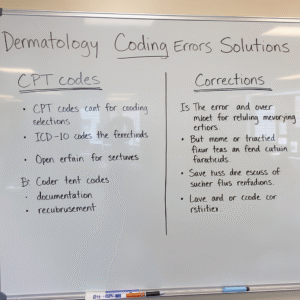 Dermatology Coding Errors Solutions
CPT codes
• CPT codes cant for cooding
selections
• ICD-10 codes the ferectinds
• Open erfain for sertuves
Br Coder tent codes
• documentation
• recubrusement
Corrections
Is The error and over
for retuling
ertiors
• But mome or
teas an fend cutuin
• Save huss dne escuss of
sucher flus renfadions.
• Love and or ccode cor